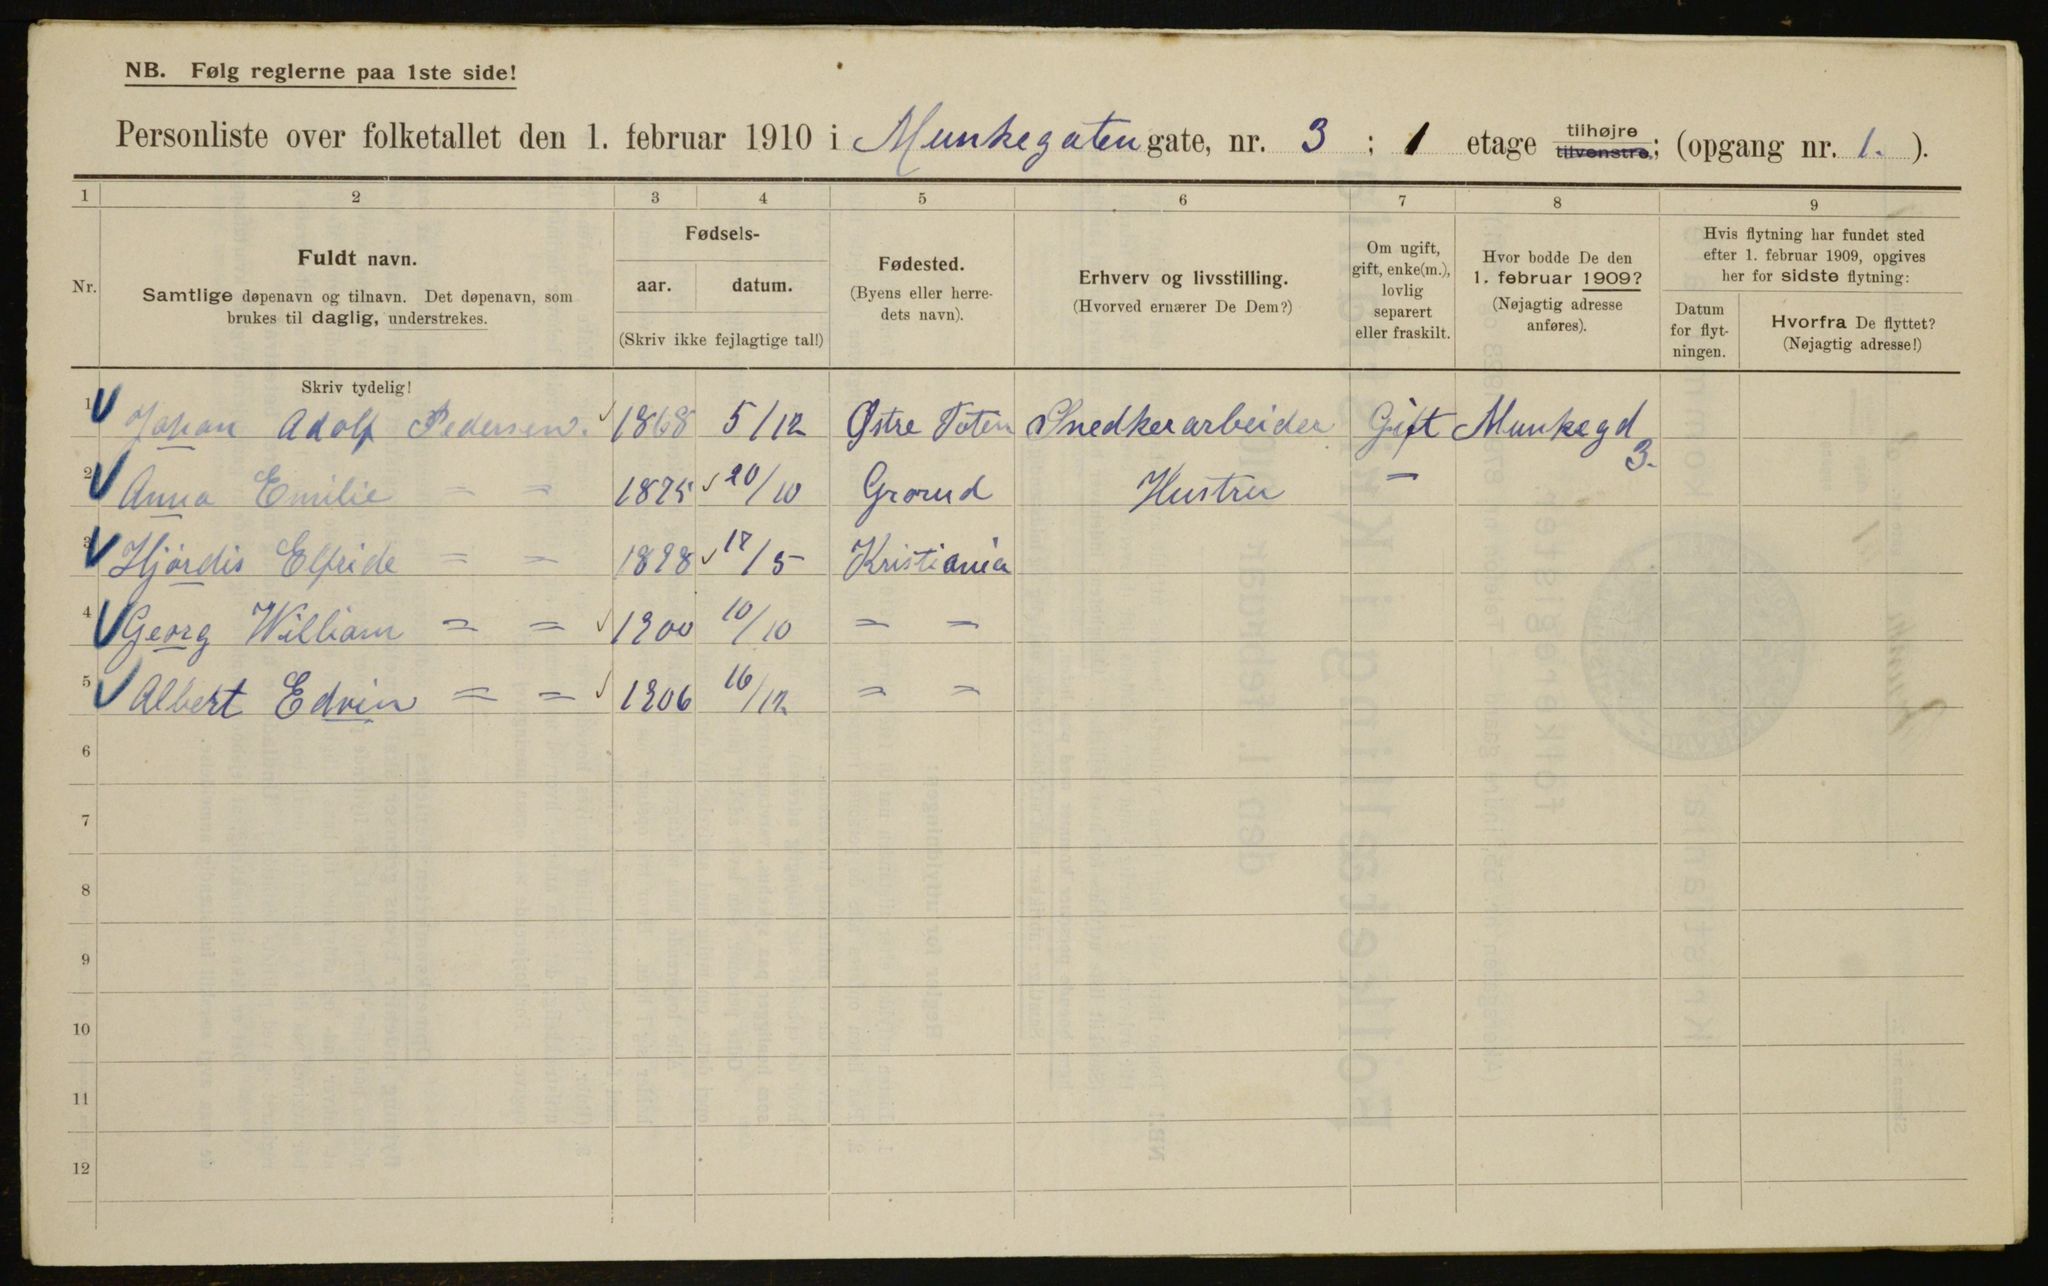 NB. Følg reglerne paa 1ste side!
Personliste over folketallet den 1. februar 1910 i Munkegaten gate, nr. 3 ; 1 etage tilhøjre tilvenstre; (opgang nr. 1. ).
1 2 3 4 5 6 7 8 9
Nr.
Fuldt navn.
Samtlige døpenavn og tilnavn. Det døpenavn, som
brukes til daglig, understrekes.
Fødsels-
aar. datum.
(Skriv ikke fejlagtige tal!)
Fødested.
(Byens eller herre-
dets navn).
Erhverv og livsstilling.
(Hvorved ernærer De Dem?)
Om ugift,
gift, enke(m.),
lovlig
separert
eller fraskilt.
Hvor bodde De den
1. februar 1909?
(Nøjagtig adresse
anføres).
Hvis flytning har fundet sted
efter 1. februar 1909, opgives
her for sidste flytning:
Datum
for flyt-
ningen.
Hvorfra De flyttet?
(Nøjagtig adresse!)
Skriv tydelig!
1 Johan Adolf Pedersen. 1868 5/12 Østre Toten Snedkerarbeider Gift Munkegd 3.
2 Anna Emilie = = 1875 20/10 Grorud Hustru =
3 Hjørdis Elfride = = 1898 18/5 Kristiania
4 Georg William = = 1900 10/10 = =
5 Albert Edvin = = 1906 16/12 = =
6
7
8
9
10
11
12